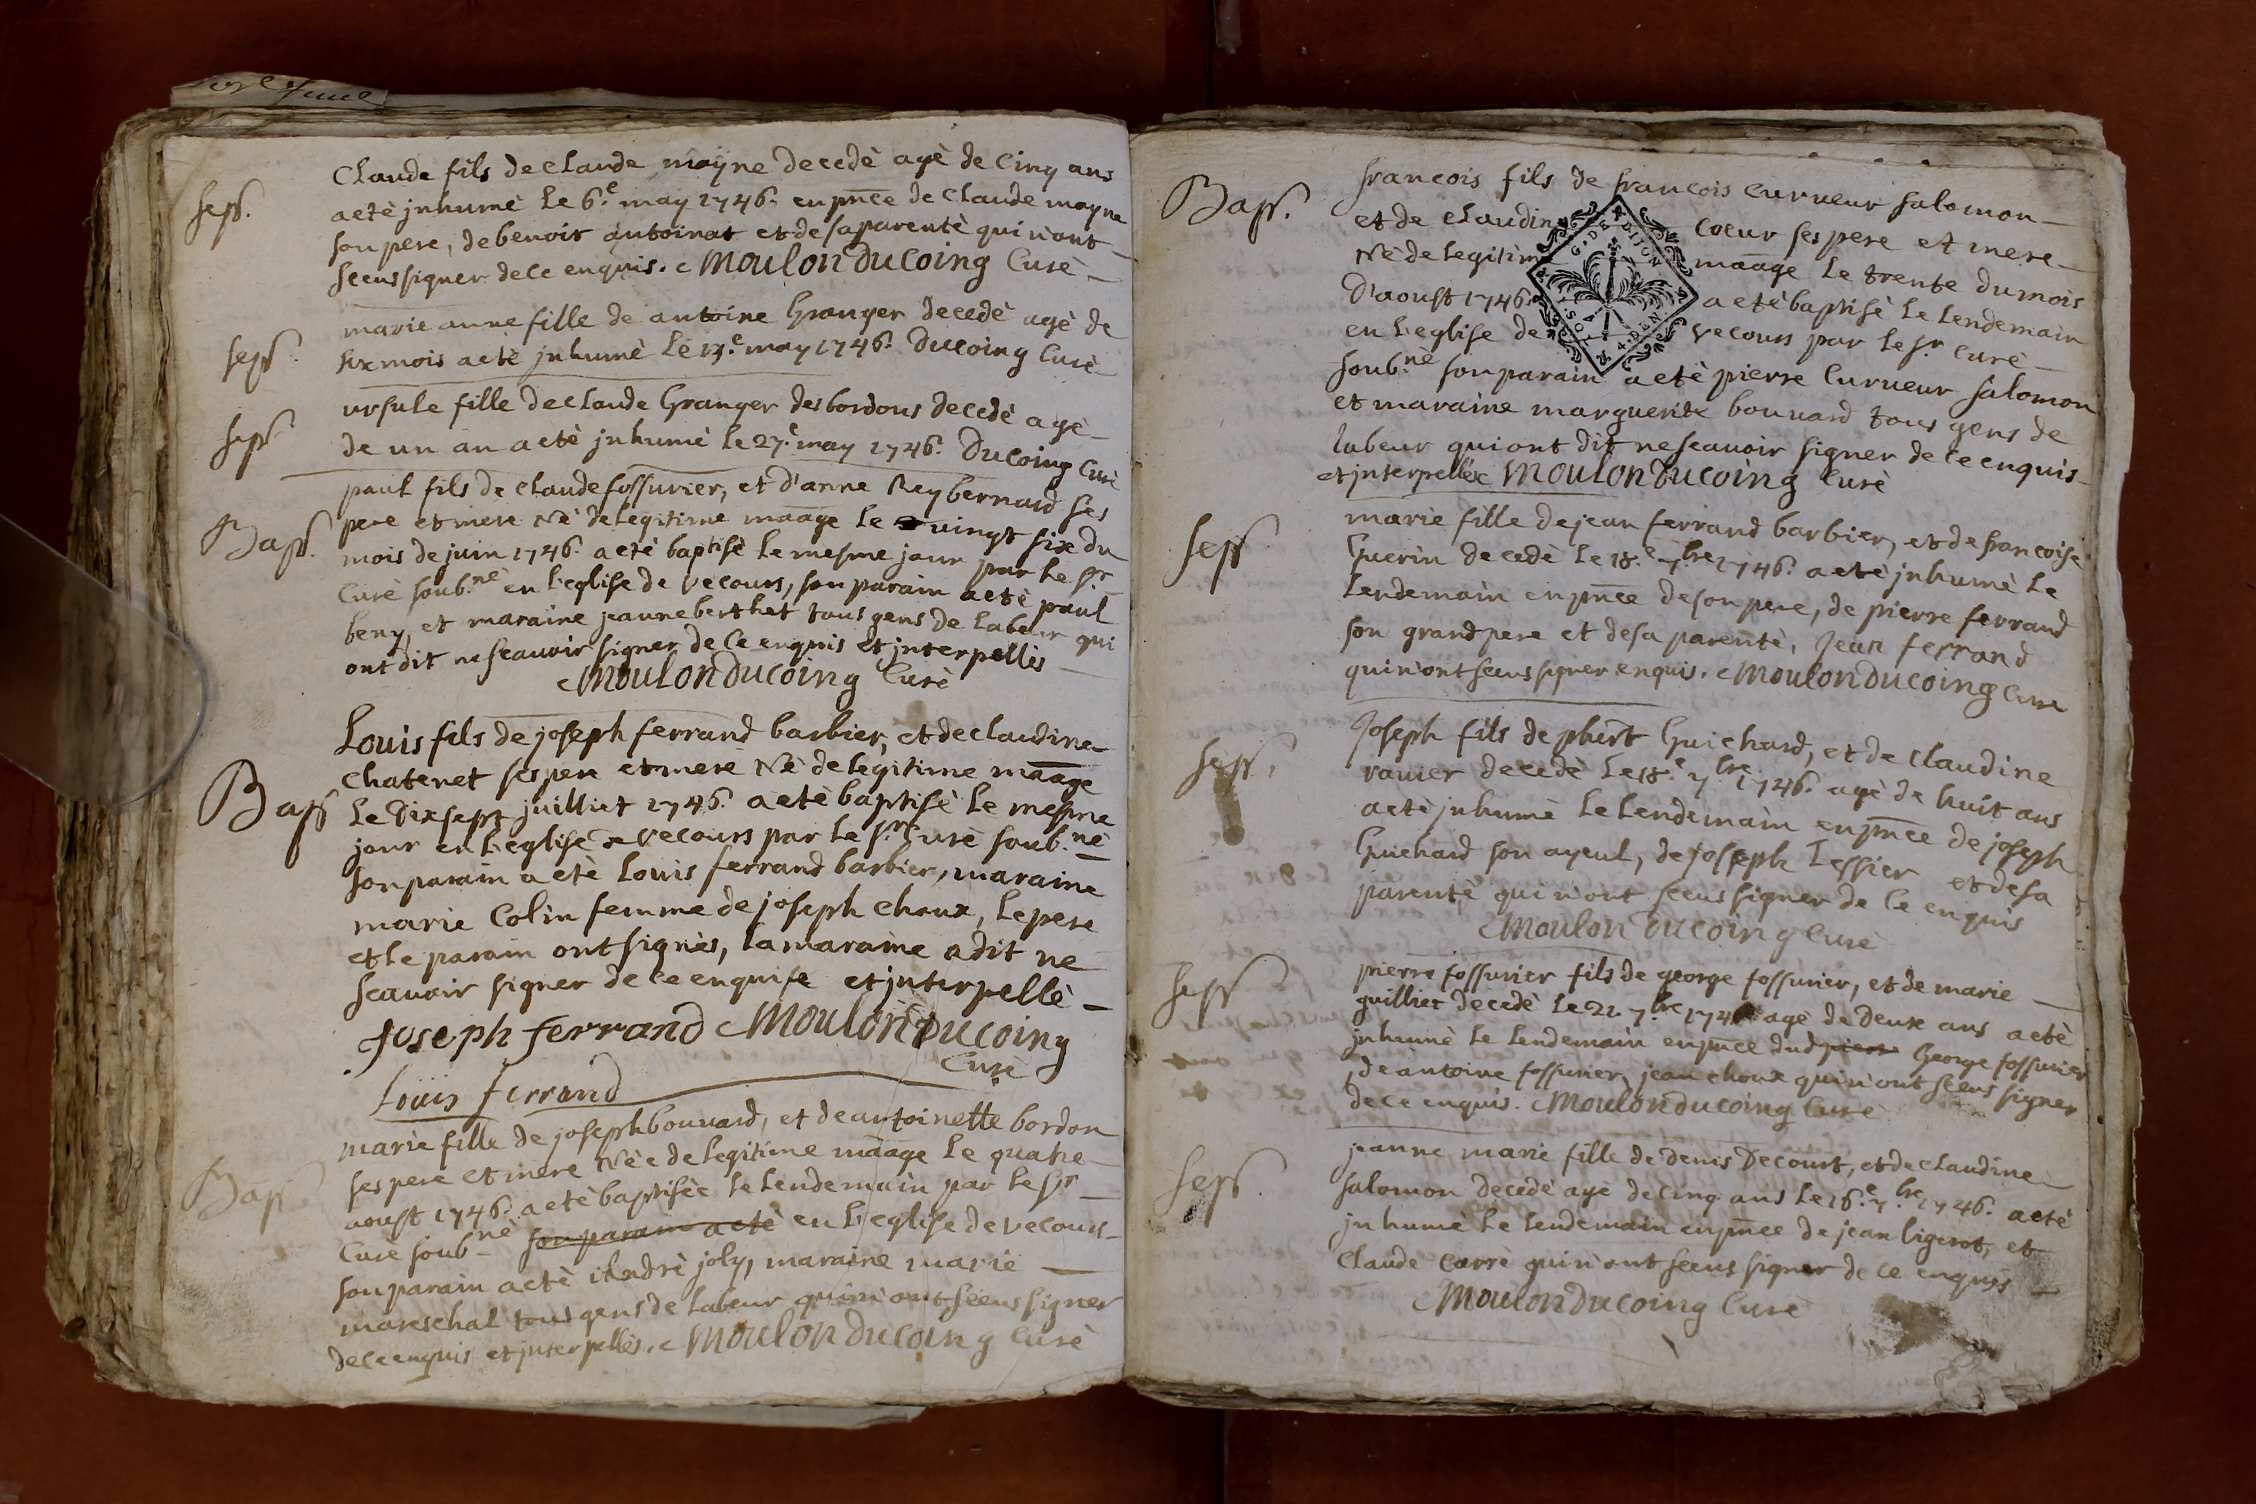 Claude fils de claude mayne decedè agè de cinq ans
Sep.
a etè jnhumè le 6.e may 1746. en pnce de claude mayne
son pere, de benoit antoinat et de sa parentè qui n'ont
sceus signer de ce enquis. Moulon Ducoing Curè
marie anne fille de antoine Granger decedè agè de
Sep.
six mois a etè jnhumè le 13.e may 1746. Ducoing Curè
ursule fille de claude Granger des bordons decedè agè
Sep.
de un an a etè jnhumè le 27.e may 1746. Ducoing Curè
paul fils de claude fossurier, et d'anne Rey bernard ses
Bap.
pere et mere Nè de legitime maage le vingt six du
mois de juin 1746. a etè baptisè le mesme jour par le sr
Curè soub.nè en l'eglise de vecours, son parain a etè paul
beny, et maraine jeanne berthet tous gens de labeur qui
ont dit ne scauoir signer de ce enquis et jnterpellès
Moulon Ducoing Curè
Louis fils de joseph ferrand barbier, et de claudine
chatenet ses pere et mere Nè de legitime maage
Bap
Le dix sept juilliet 1746. a etè baptisè le mesme
jour en l'eglise de vecours par le sr. Curè soub.nè
son parain a etè Louis ferrand barbier, maraine
marie Colin femme de joseph choux, le pere
et le parain ont signès, la maraine a dit ne
scauoir signer de ce enquise et jnterpellè
Joseph ferrand Moulon Ducoing
Curè
Louis ferrand
marie fille de joseph bouuard, et de antoinette bordon
ses pere et mere Nèe de legitime maage le quatre
Bap
aoust 1746. a etè baptisèe le lendemain par le sr
Curè soub.nè son parain a etè en l'eglise de vecours
son parain a etè Andrè joly, maraine marie
mareschal tous gens de labeur qui n'ont sceus signer
de ce enquis et jnterpellès. Moulon Ducoing Curè
francois fils de francois Curueur salomon
Bap.
et de claudine Coeur ses pere et mere
Nè de legitime maage le trente du mois
D'aoust 1746. a etè baptisè le lendemain
en l'eglise de vecours par le sr. Curè
G. DE DIJON
4. DEN
soub.nè son parain a etè pierre Curueur salomon
et maraine marguerite bouuard tous gens de
labeur qui ont dit ne scauoir signer de ce enquis
et jnterpellès Moulon Ducoing Curè
marie fille de jean ferrand barbier, et de francoise
Sep
Guerin decedè le 18.e 7.bre 1746. a etè jnhumè le
lendemain en pnce de son pere, de pierre ferrand
son grand pere et de sa parentè, Jean ferrand
qui n'ont sceus signer enquis. Moulon Ducoing Cure
Joseph fils de phbert Guichard, et de claudine
Sep.
rauier decedè le 18.e 7bre 1746. agè de huit ans
a etè jnhumè le lendemain en pnce de joseph
Guichard son ayeul, de joseph Tessier et de sa
parentè qui n'ont sceus signer de ce enquis
Moulon Ducoing Curè
pierre fossurier fils de george fossurier, et de marie
Sep
guilliet decedè le 21. 7.bre 1746 agè de deux ans a etè
jnhumè le lendemain en pnce dud pier George fossurier
, de antoine fossurier, jean choux qui n'ont sceus signer
de ce enquis. Moulon Ducoing Curè
jeanne marie fille de denis Decourt, et de claudine
Sep.
salomon decedè agè de cinq ans le 16.e 7.bre 1746. a etè
jnhumè le lendemain en pnce de jean ligerot, et
claude carrè qui n'ont sceus signer de ce enquis
Moulon Ducoing Curè